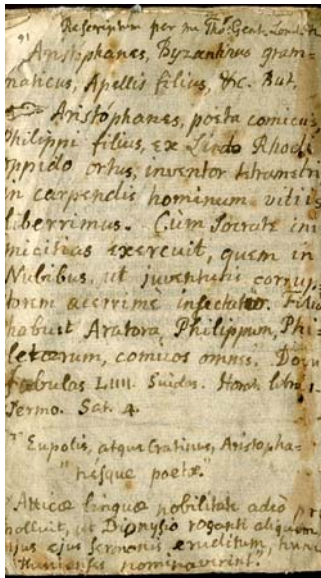 Rescriptum per me Tho: Gent. Lond.
Aristophanes, Byzantinus gram=
maticus, Apellis filius, &c. But,
Aristophanes, poeta comicus,
Philippi filius, ex Lindo Rhodi
oppido ortus, inventor tetrametri
in carpendis hominum vitiis
liberrimus. Cùm Socrate ini
micitias exercuit, quem in
Nubibus, ut juventutis corrup=
torem acerrime insectatur. Filios
habuit Aratora, Philippum, Phi=
letærum, comicos omnes. Docuit
fabulas LIIII. Suidas. Horat. libro 1.
Sermo. Sat. 4.
"Eupolis, atque Cratinus, Aristopha=
"nesque poetæ."
Atticæ linguæ nobilitate adeò
polluit, ut Dionysio roganti aliquem
ejus sermonis eruditum, hunc
Athenienses nominaverint."